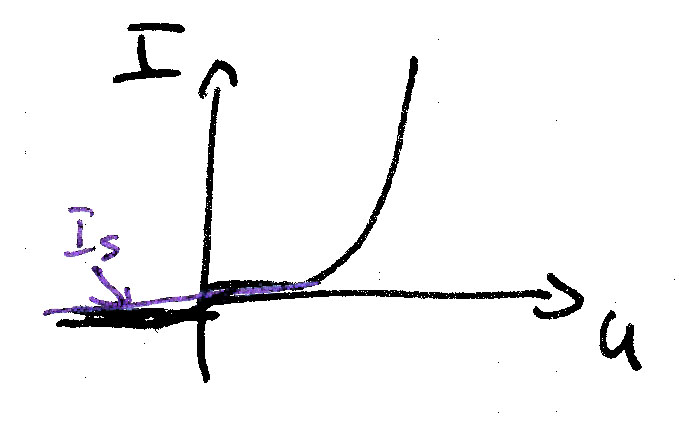 I
Is
u